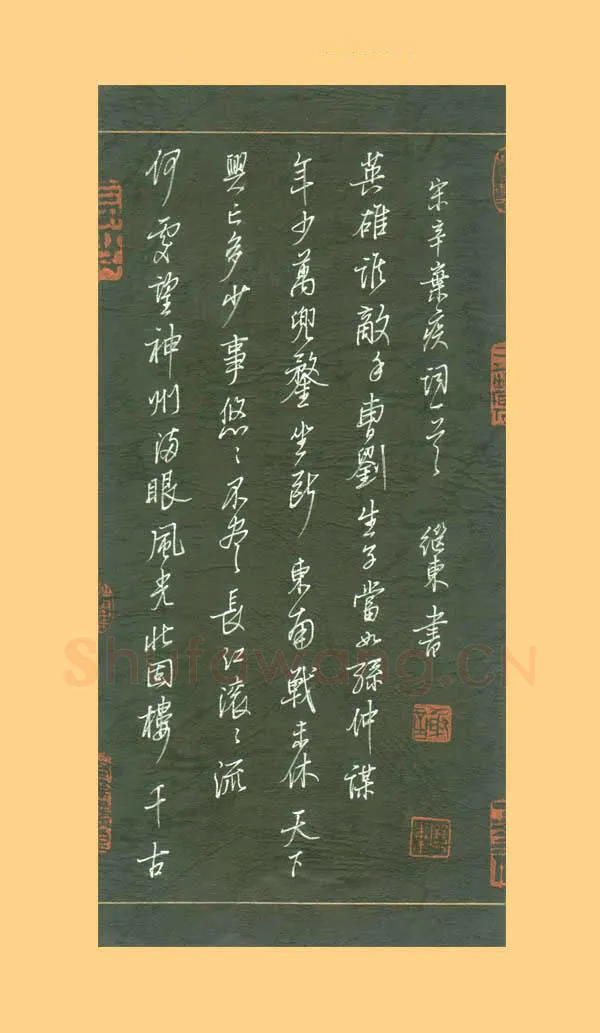 何處望神州滿眼風光北固樓千古
興亡多少事悠〻不盡長江滾〻流
年少萬兜鍪坐斷東南戰未休天下
英雄誰敵手曹劉生子當如孫仲謀
宋辛棄疾詞一首 繼東書
Shufawang.CN